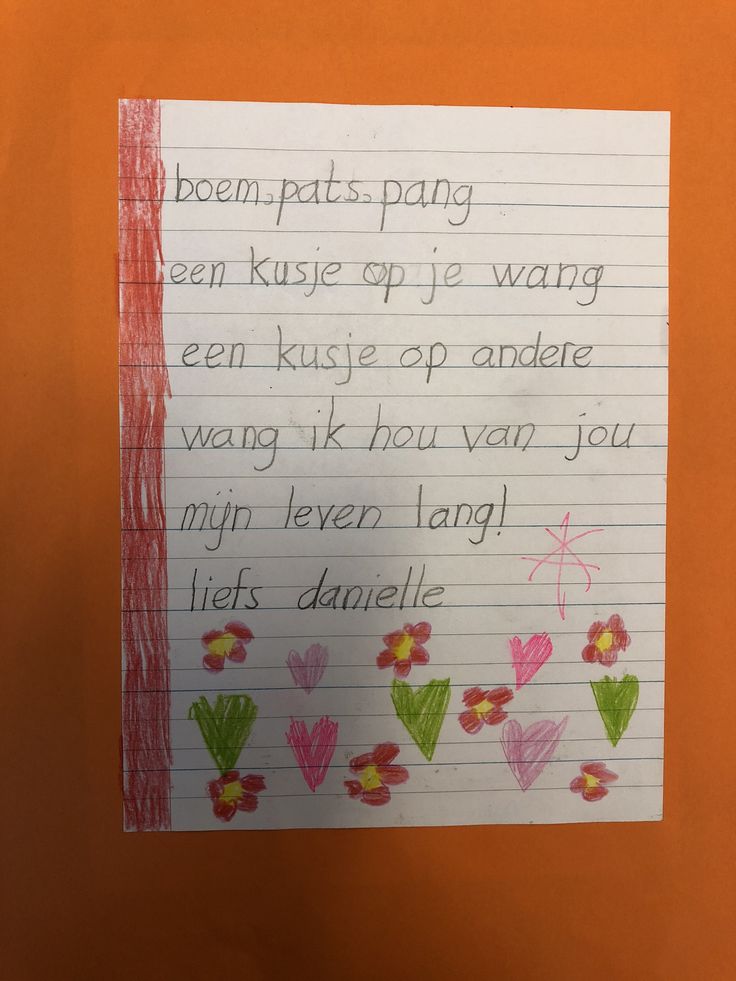 boem, pats, pang
een kusje op je wang
een kusje op andere
wang ik hou van jou
mijn leven lang!
liefs danielle